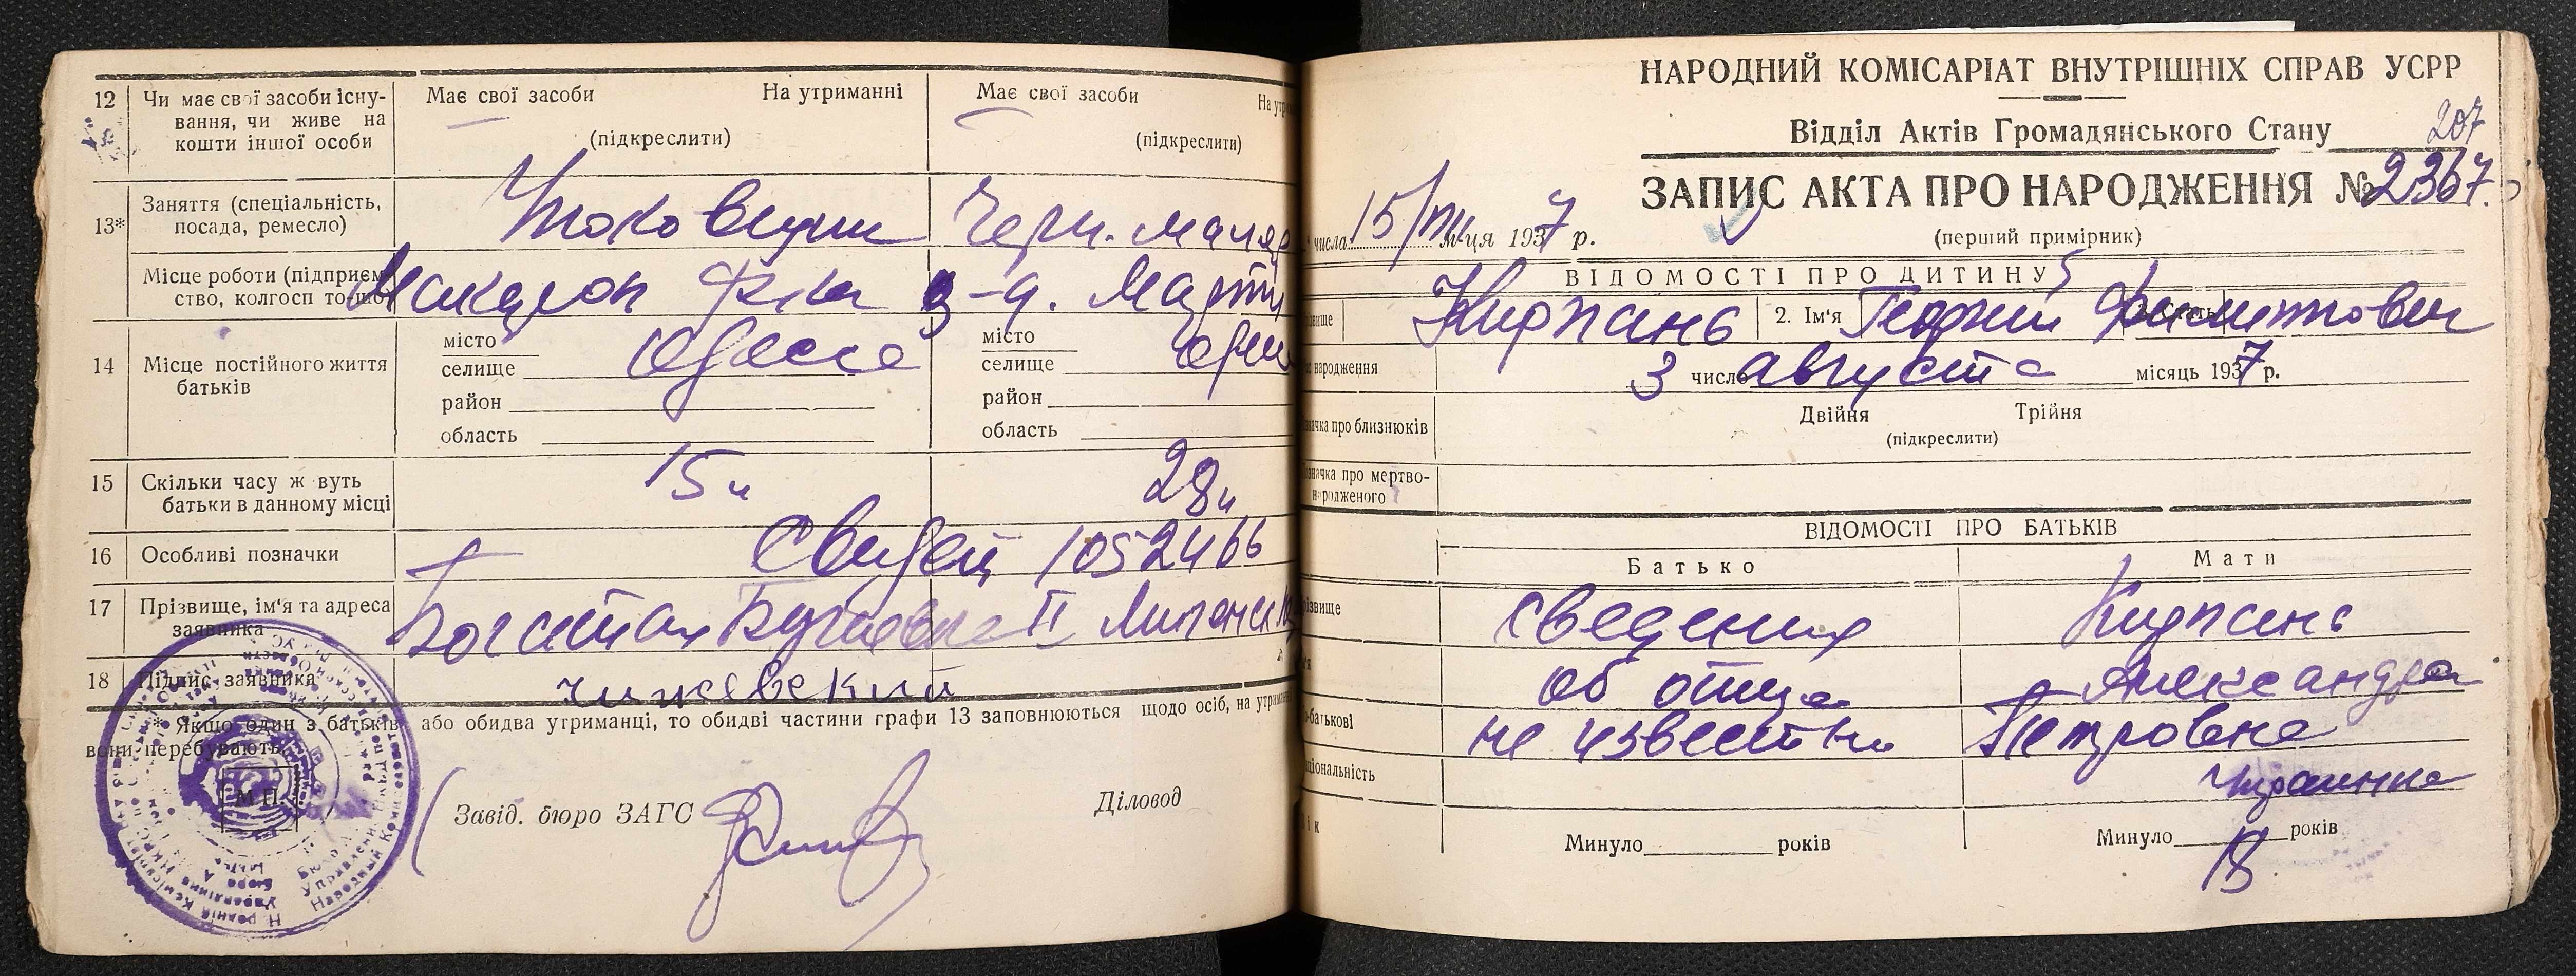 12 Чи має свої засоби існу-
вання, чи живе на
кошти іншої особи
Має свої засоби На утриманні
(підкреслити)
Має свої засоби На утри
(підкреслити)
13* Заняття (спеціальність,
посада, ремесло)
Черн. маляр
Місце роботи (підприєм-
ство, колгосп тощо)
Макарон ф-ка з-д. Марти
14 Місце постійного життя
батьків
місто
селище Одесса
район
область
місто
селище
район
область
15 Скільки часу ж вуть
батьки в данному місці
15 л 28 л
16 Особливі позначки
Свидет 1052466
17 Прізвище, ім'я та адреса
заявника
18 Підпис заявника
Чижевский
* Якщо один з батьків або обидва утриманці, то обидві частини графи 13 заповнюються щодо осіб, на утриманні
вони перебувають.
М.П.
Завід. бюро ЗАГС Діловод
НАРОДНИЙ КОМІСАРІАТ ВНУТРІШНІХ СПРАВ УСРР
Відділ Актів Громадянського Стану
207
ЗАПИС АКТА ПРО НАРОДЖЕННЯ № 2367.
числа 15/VIII м-ця 1937 р.
(перший примірник)
ВІДОМОСТІ ПРО ДИТИНУ
звище Кирпань 2. Ім'я Георгий
народження 3 число августа місяць 1937 р.
начка про близнюків Двійня Трійня
(підкреслити)
значка про мертво-
народженого
ВІДОМОСТІ ПРО БАТЬКІВ
Батько Мати
різвище Сведения Кирпань
м'я об отце Александра
о-батькові не известны Петровна
ціональність Украинка
Вік Минуло років Минуло 18 років